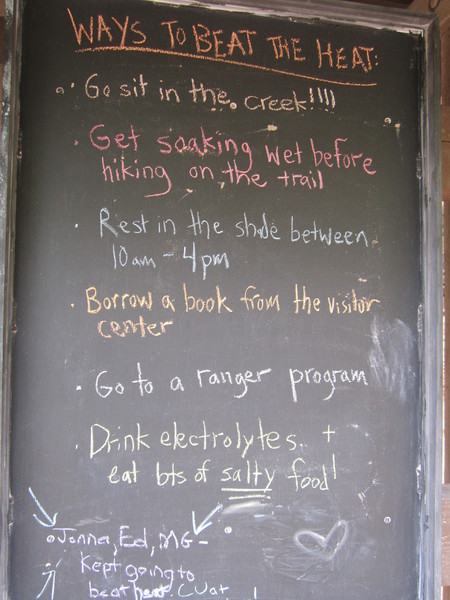 WAYS TO BEAT THE HEAT:
· Go sit in the creek!!!!
· Get soaking wet before
hiking on the trail
· Rest in the shade between
10am - 4pm
· Borrow a book from the visitor
center
· Go to a ranger program
· Drink electrolytes +
eat bts of salty food!
Jonna, Ed, MG -
Kept going to
beat heat.